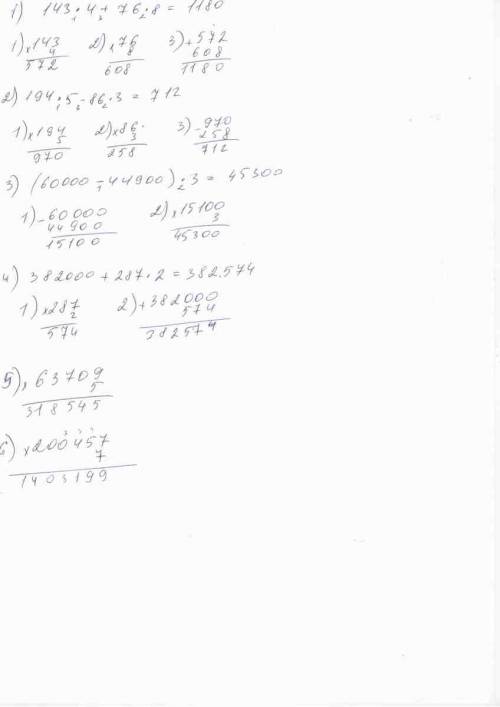 1) 143·4+76·8=1180
1) ×143 2) ×76 3) +572
4 8 608
572 608 1180
2) 194·5-86·3=712
1) ×194 2) ×86 3) -970
5 3 258
970 258 712
3) (60000-44900)·3=45300
1) -60000 2) ×15100
44900 3
15100 45300
4) 382000+287·2=382.574
1) ×287 2) +382000
2 574
574 382574
5) ×63709
5
318545
6) ×200457
7
1403199